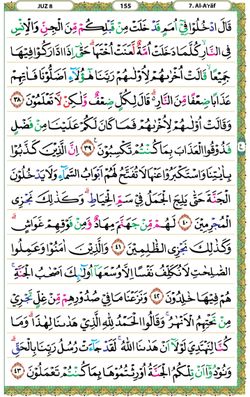 JUZ 8 155 7. Al-A'rāf
قَالَ ادْخُلُوْا فِيْٓ اُمَمٍ قَدْ خَلَتْ مِنْ قَبْلِكُمْ مِّنَ الْجِنِّ وَالْاِنْسِ
فِى النَّارِۙ كُلَّمَا دَخَلَتْ اُمَّةٌ لَّعَنَتْ اُخْتَهَاۗ حَتّٰٓى اِذَا ادَّارَكُوْا فِيْهَا
جَمِيْعًاۙ قَالَتْ اُخْرٰىهُمْ لِاُوْلٰىهُمْ رَبَّنَا هٰٓؤُلَاۤءِ اَضَلُّوْنَا فَاٰتِهِمْ
عَذَابًا ضِعْفًا مِّنَ النَّارِ ەۗ قَالَ لِكُلٍّ ضِعْفٌ وَّلٰكِنْ لَّا تَعْلَمُوْنَ ٣٨
وَقَالَتْ اُوْلٰىهُمْ لِاُخْرٰىهُمْ فَمَا كَانَ لَكُمْ عَلَيْنَا مِنْ فَضْلٍ
فَذُوْقُوا الْعَذَابَ بِمَا كُنْتُمْ تَكْسِبُوْنَ ٣٩ اِنَّ الَّذِيْنَ كَذَّبُوْا
بِاٰيٰتِنَا وَاسْتَكْبَرُوْا عَنْهَا لَا تُفَتَّحُ لَهُمْ اَبْوَابُ السَّمَاۤءِ وَلَا يَدْخُلُوْنَ
الْجَنَّةَ حَتّٰى يَلِجَ الْجَمَلُ فِيْ سَمِّ الْخِيَاطِۗ وَكَذٰلِكَ نَجْزِى
الْمُجْرِمِيْنَ ٤٠ لَهُمْ مِّنْ جَهَنَّمَ مِهَادٌ وَّمِنْ فَوْقِهِمْ غَوَاشٍۗ
وَكَذٰلِكَ نَجْزِى الظّٰلِمِيْنَ ٤١ وَالَّذِيْنَ اٰمَنُوْا وَعَمِلُوا
الصّٰلِحٰتِ لَا نُكَلِّفُ نَفْسًا اِلَّا وُسْعَهَآ اُولٰۤىِٕكَ اَصْحٰبُ الْجَنَّةِۚ
هُمْ فِيْهَا خٰلِدُوْنَ ٤٢ وَنَزَعْنَا مَا فِيْ صُدُوْرِهِمْ مِّنْ غِلٍّ تَجْرِيْ
مِنْ تَحْتِهِمُ الْاَنْهٰرُۚ وَقَالُوا الْحَمْدُ لِلّٰهِ الَّذِيْ هَدٰىنَا لِهٰذَاۗ وَمَا
كُنَّا لِنَهْتَدِيَ لَوْلَآ اَنْ هَدٰىنَا اللّٰهُۚ لَقَدْ جَاۤءَتْ رُسُلُ رَبِّنَا بِالْحَقِّۗ
وَنُوْدُوْٓا اَنْ تِلْكُمُ الْجَنَّةُ اُوْرِثْتُمُوْهَا بِمَا كُنْتُمْ تَعْمَلُوْنَ ٤٣